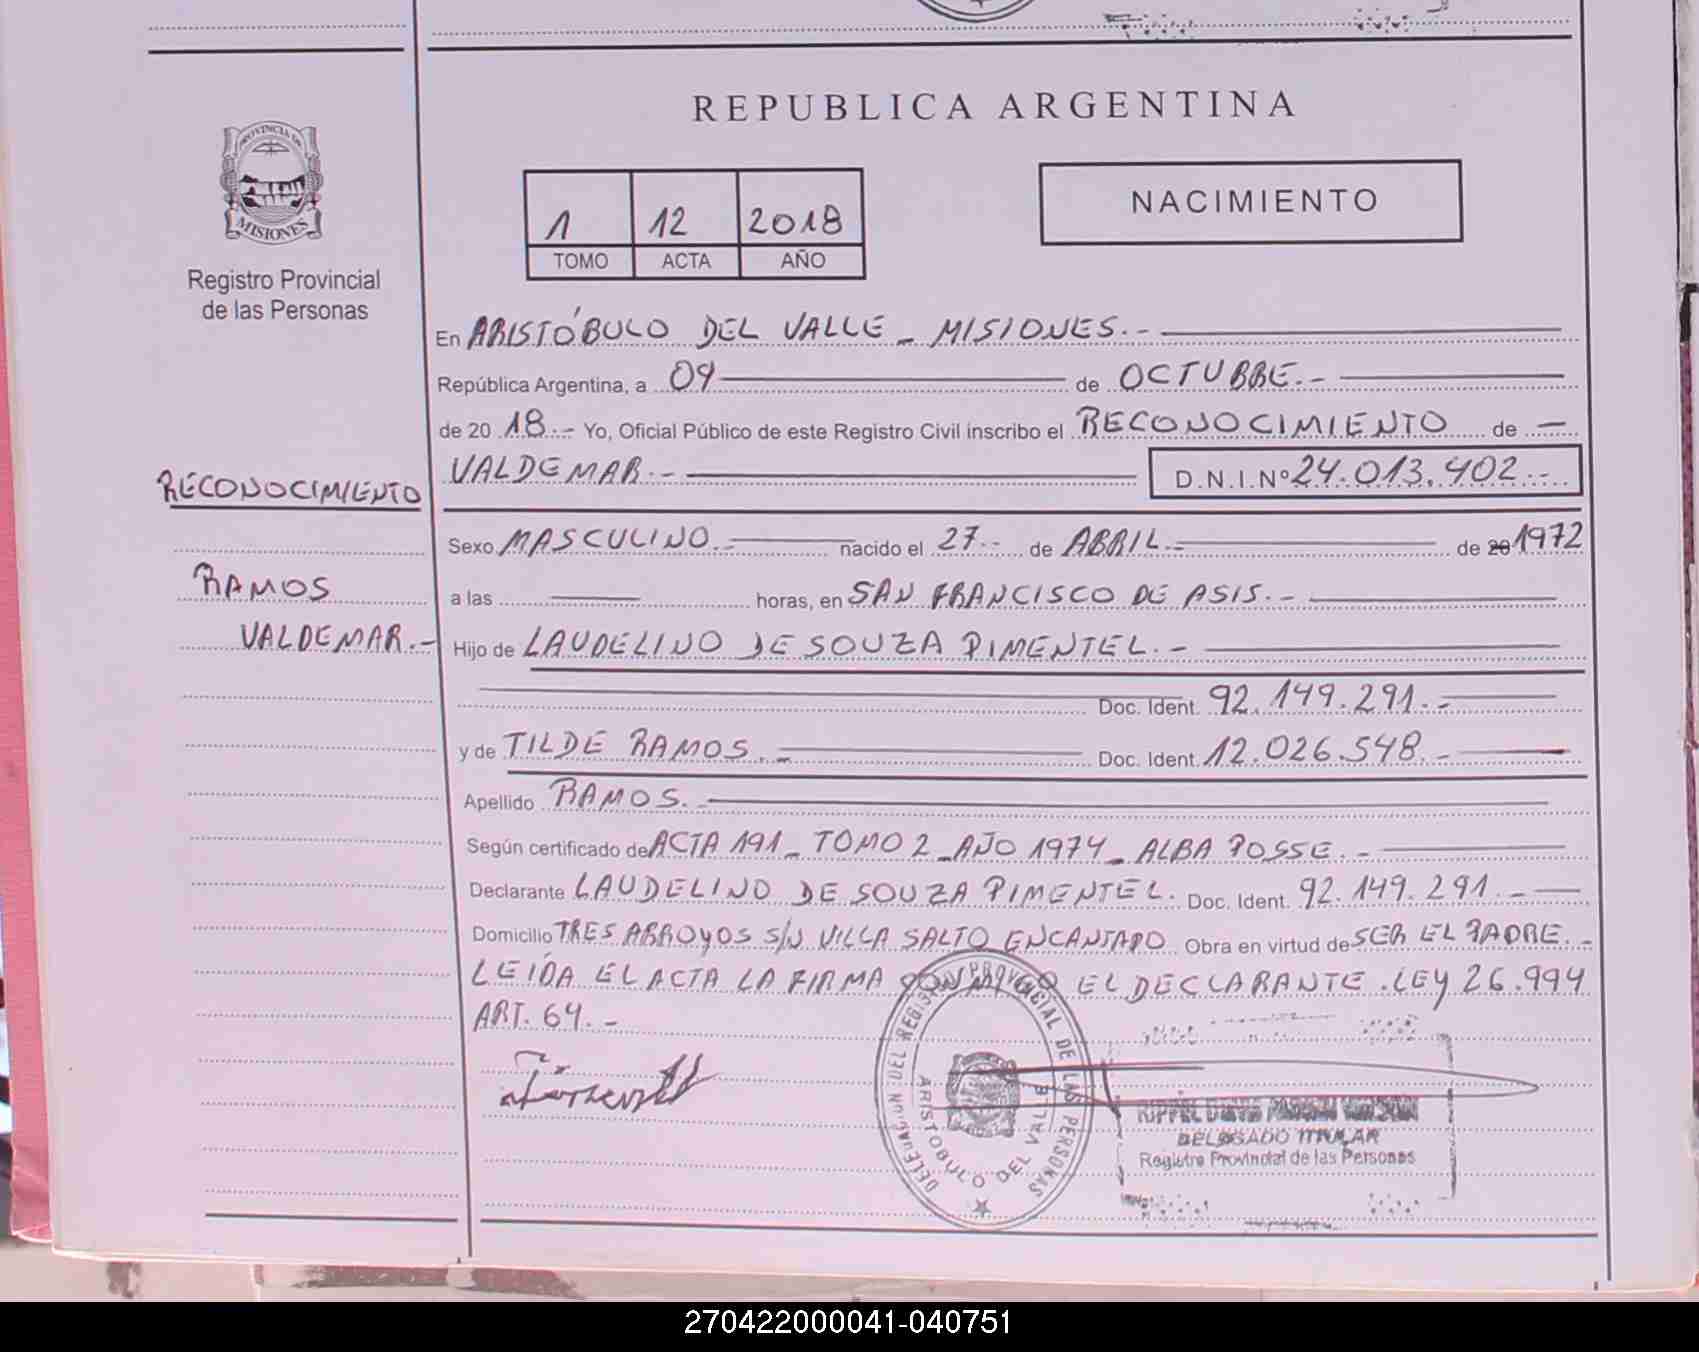 REPUBLICA ARGENTINA
PROVINCIA DE
MISIONES
Registro Provincial
de las Personas
1 12 2018
TOMO ACTA AÑO
NACIMIENTO
En ARISTÓBULO DEL VALLE - MISIONES.-
República Argentina, a 09 de OCTUBRE.-
de 20 18.- Yo, Oficial Público de este Registro Civil inscribo el RECONOCIMIENTO de
VALDEMAR.- D.N.I.Nº 24.013.402.-
RECONOCIMIENTO
Sexo MASCULINO.- nacido el 27.- de ABRIL.- de 20 1972
RAMOS
a las horas, en SAN FRANCISCO DE ASIS.-
VALDEMAR.-
Hijo de LAUDELINO DE SOUZA PIMENTEL.-
Doc. Ident. 92.149.291.-
y de TILDE RAMOS.- Doc. Ident. 12.026.548.-
Apellido RAMOS.-
Según certificado de ACTA 191_ TOMO 2_ AÑO 1974_ ALBA POSSE.-
Declarante LAUDELINO DE SOUZA PIMENTEL. Doc. Ident. 92.149.291.-
Domicilio TRES ARROYOS S/N VILLA SALTO ENCANTADO Obra en virtud de SER EL PADRE.-
LEIDA EL ACTA LA FIRMA CONMIGO EL DECLARANTE. LEY 26.994
ART. 64.-
DELEGACION DEL REGISTRO PROVINCIAL DE LAS PERSONAS
ARISTOBULO DEL VALLE
DELEGADO TITULAR
Registro Provincial de las Personas
270422000041-040751